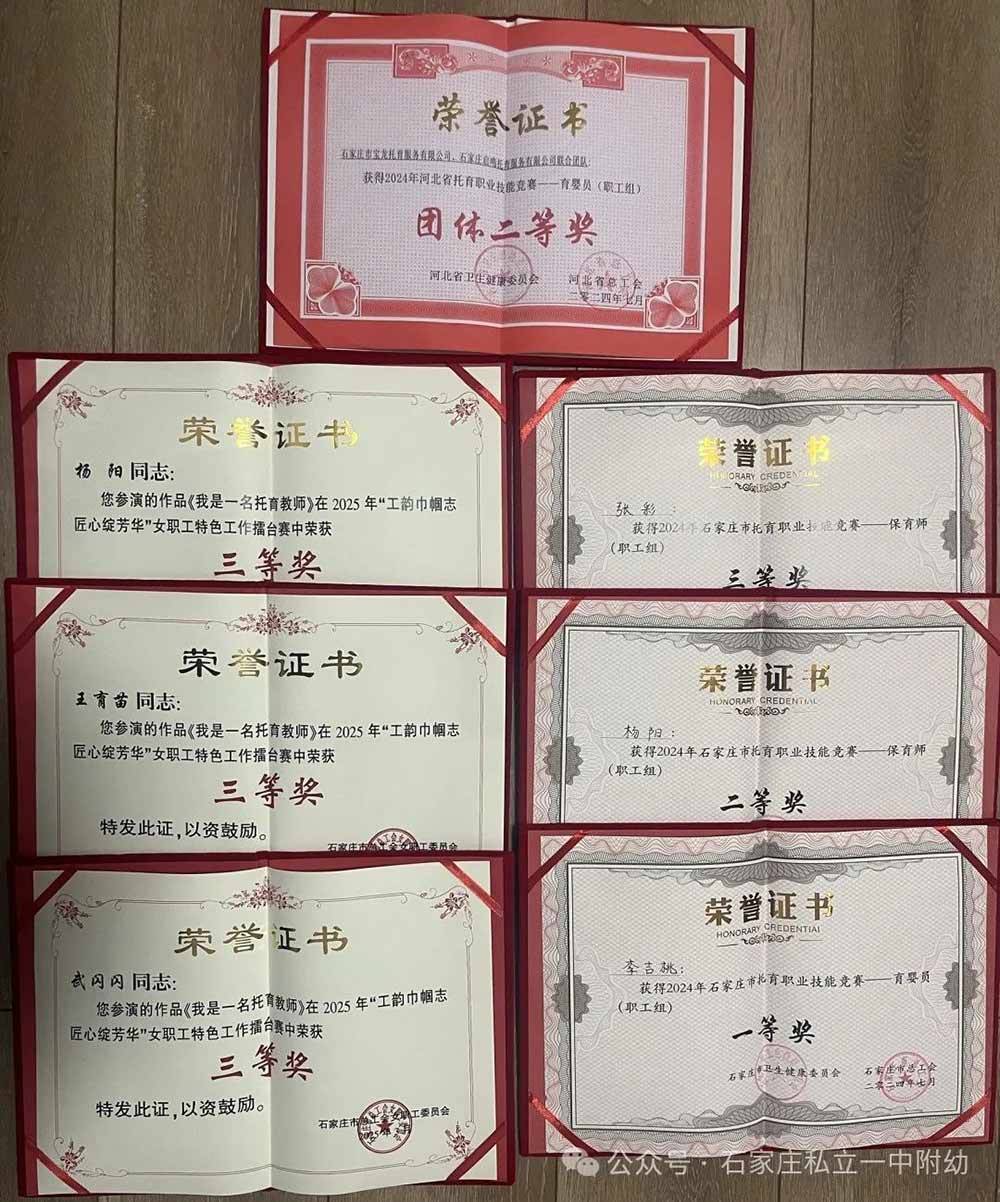 荣誉证书
石家庄市宝龙托育服务有限公司、石家庄启鸣托育服务有限公司联合团队:
获得2024年河北省托育职业技能竞赛——育婴员（职工组）
团体二等奖
河北省卫生健康委员会 河北省总工会
二〇二四年七月
荣誉证书
杨 阳 同志:
您参演的作品《我是一名托育教师》在 2025 年“工韵巾帼志
匠心绽芳华”女职工特色工作擂台赛中荣获
三等奖
荣誉证书
王育苗 同志:
您参演的作品《我是一名托育教师》在 2025 年“工韵巾帼志
匠心绽芳华”女职工特色工作擂台赛中荣获
三等奖
特发此证,以资鼓励。
石家庄市总工会女职工委员会
荣誉证书
武闪闪 同志:
您参演的作品《我是一名托育教师》在 2025 年“工韵巾帼志
匠心绽芳华”女职工特色工作擂台赛中荣获
三等奖
特发此证,以资鼓励。
石家庄市总工会女职工委员会
荣誉证书
HONORARY CREDENTIAL
张彩：
获得2024年石家庄市托育职业技能竞赛——保育师
（职工组）
三等奖
荣誉证书
HONORARY CREDENTIAL
杨阳：
获得2024年石家庄市托育职业技能竞赛——保育师
（职工组）
二等奖
荣誉证书
HONORARY CREDENTIAL
李吉桃：
获得2024年石家庄市托育职业技能竞赛——育婴员
（职工组）
一等奖
石家庄市卫生健康委员会 石家庄市总工会
二〇二四年七月
公众号·石家庄私立一中附幼